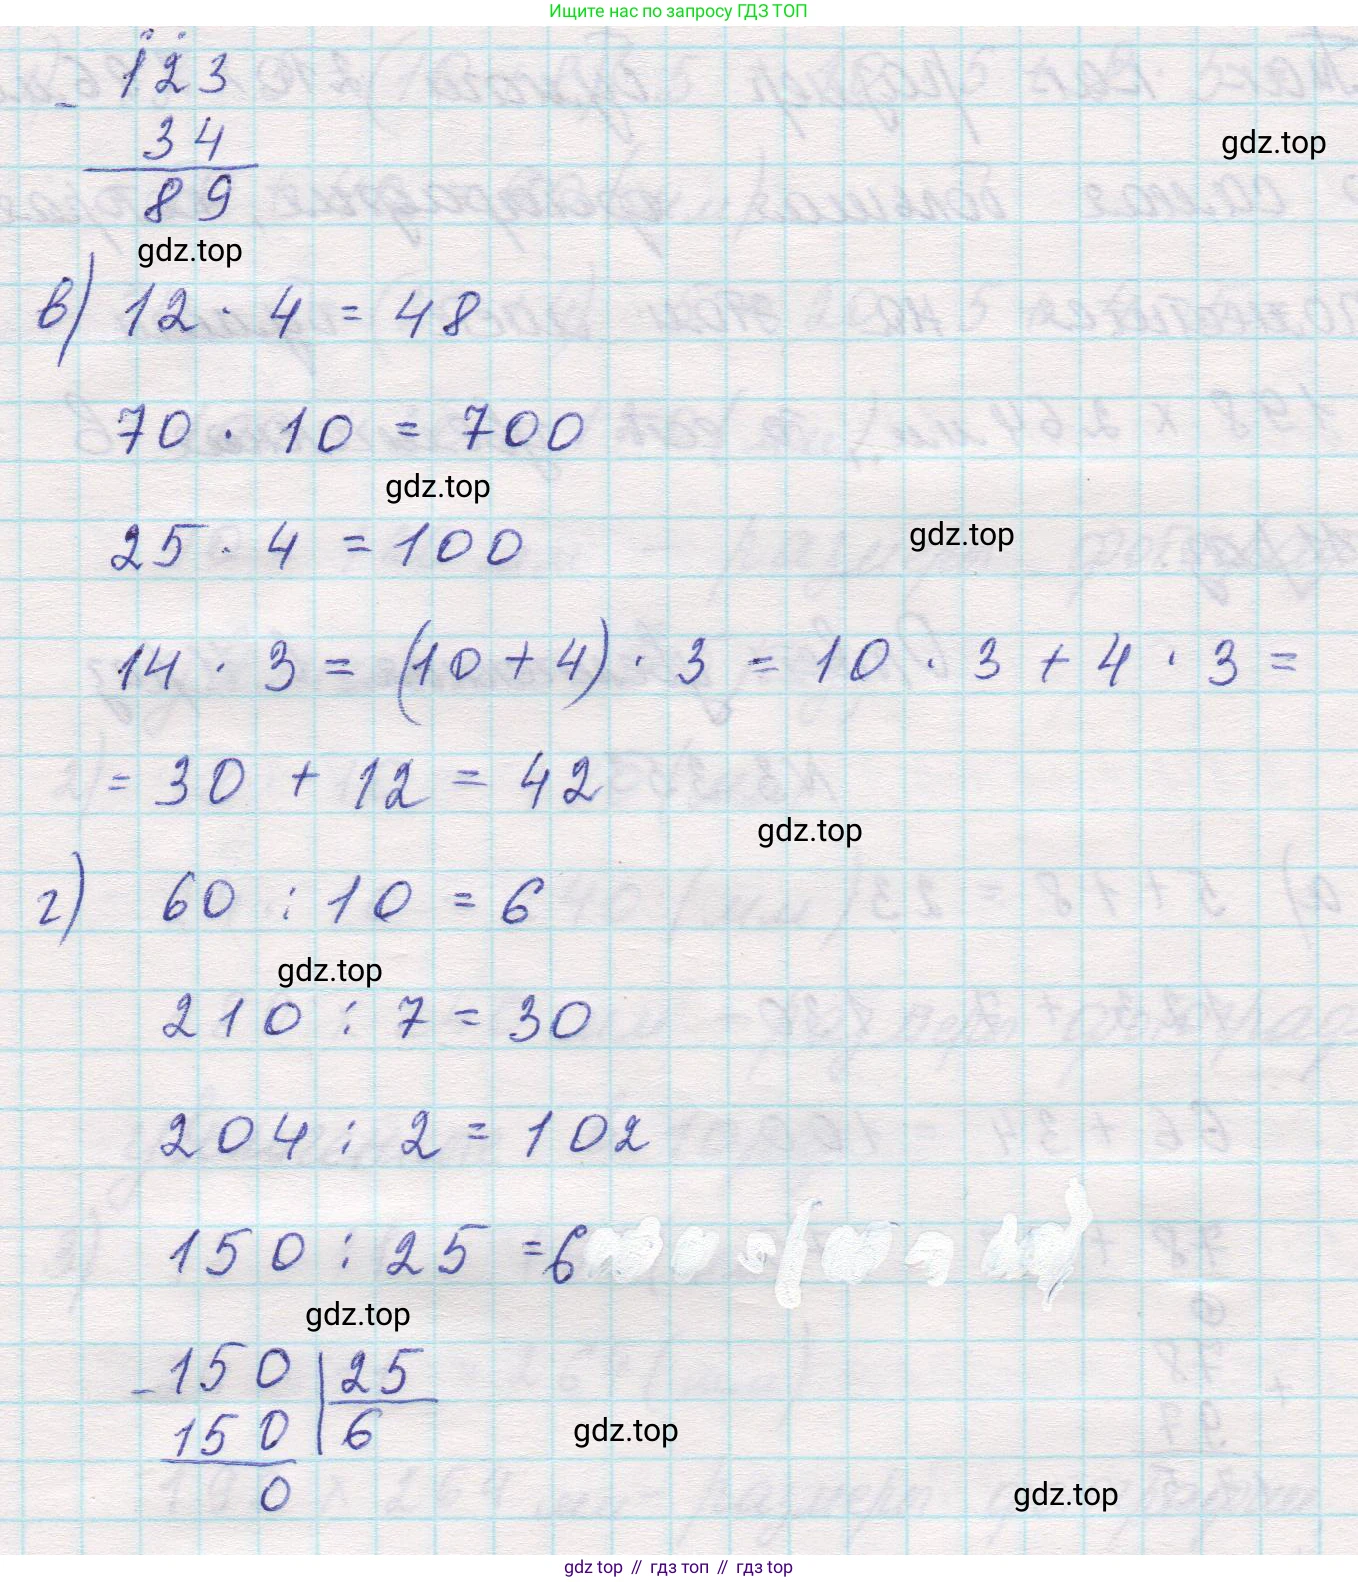 Ищите нас по запросу ГДЗ ТОП
123
- 34
89
gdz.top
gdz.top
в) 12 · 4 = 48
70 · 10 = 700
gdz.top
25 · 4 = 100
gdz.top
14 · 3 = (10 + 4) · 3 = 10 · 3 + 4 · 3 =
= 30 + 12 = 42
gdz.top
г) 60 : 10 = 6
gdz.top
210 : 7 = 30
204 : 2 = 102
150 : 25 = 6
gdz.top
- 150 | 25
150 | 6
0
gdz.top
gdz.top
gdz top // гдз топ // gdz top